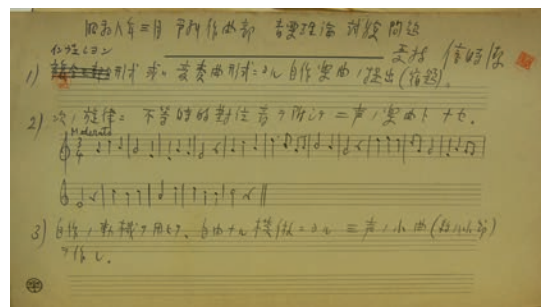 昭和八年三月 予科作曲部 音楽理論 試験問題
インヴェンション
受持 信時潔
1) 形式 或ハ 変奏曲形式ニヨル 自作楽曲ノ提出(宿題)。
2) 次ノ旋律ニ 不等時的對位音ヲ附シテ 二声ノ楽曲トナセ。
Moderato
3) 自作ノ動機ヲ用ヒテ、自由ナル模倣ニヨル 三声ノ小曲(数小節)
ヲ作レ。